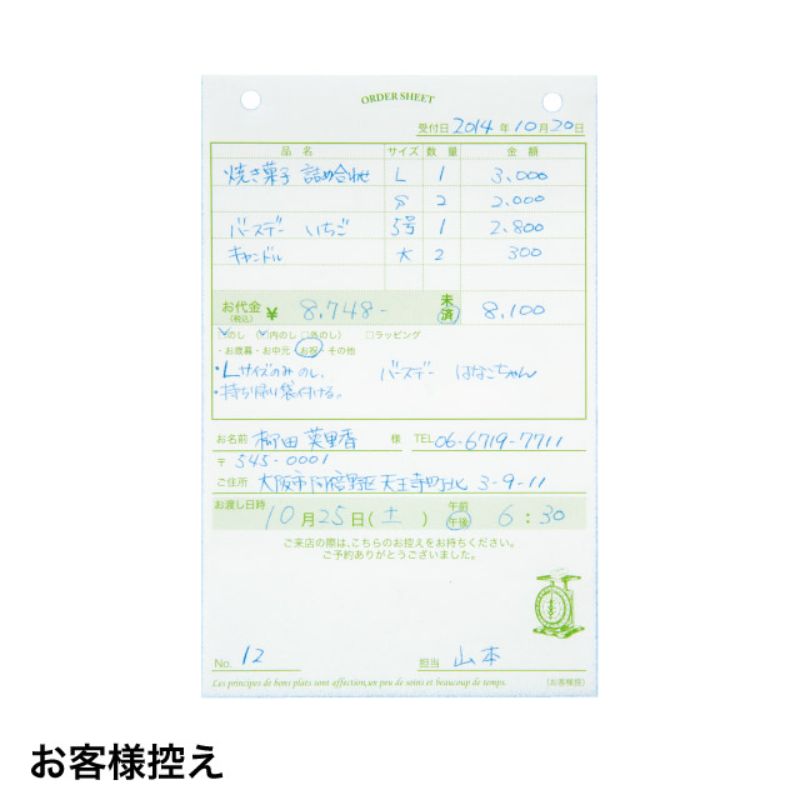 ORDER SHEET
受付日 2014 年 10 月 20 日
品 名 サイズ 数 量 金 額
焼き菓子 詰め合わせ L 1 3,000
S 2 2,000
バースデー いちご 5号 1 2,800
キャンドル 大 2 300
お代金(税込) ¥ 8,748- 未済 8,100
のし (内のし □外のし) □ラッピング
・お歳暮・お中元・お祝・その他
・Lサイズのみ のし、 バースデー はなこちゃん
・持ち帰り袋付ける。
お名前 柳田 英里香 様 TEL 06-6719-7711
〒 545-0001
ご住所 大阪市阿倍野区天王寺町北 3-9-11
お渡し日時 10月25日(土) 午前 午後 6:30
ご来店の際は、こちらのお控えをお持ちください。
ご予約ありがとうございました。
No. 12 担当 山本
Les principes de bons plats sont affection,un peu de soins et beaucoup de temps. (お客様控)
お客様控え